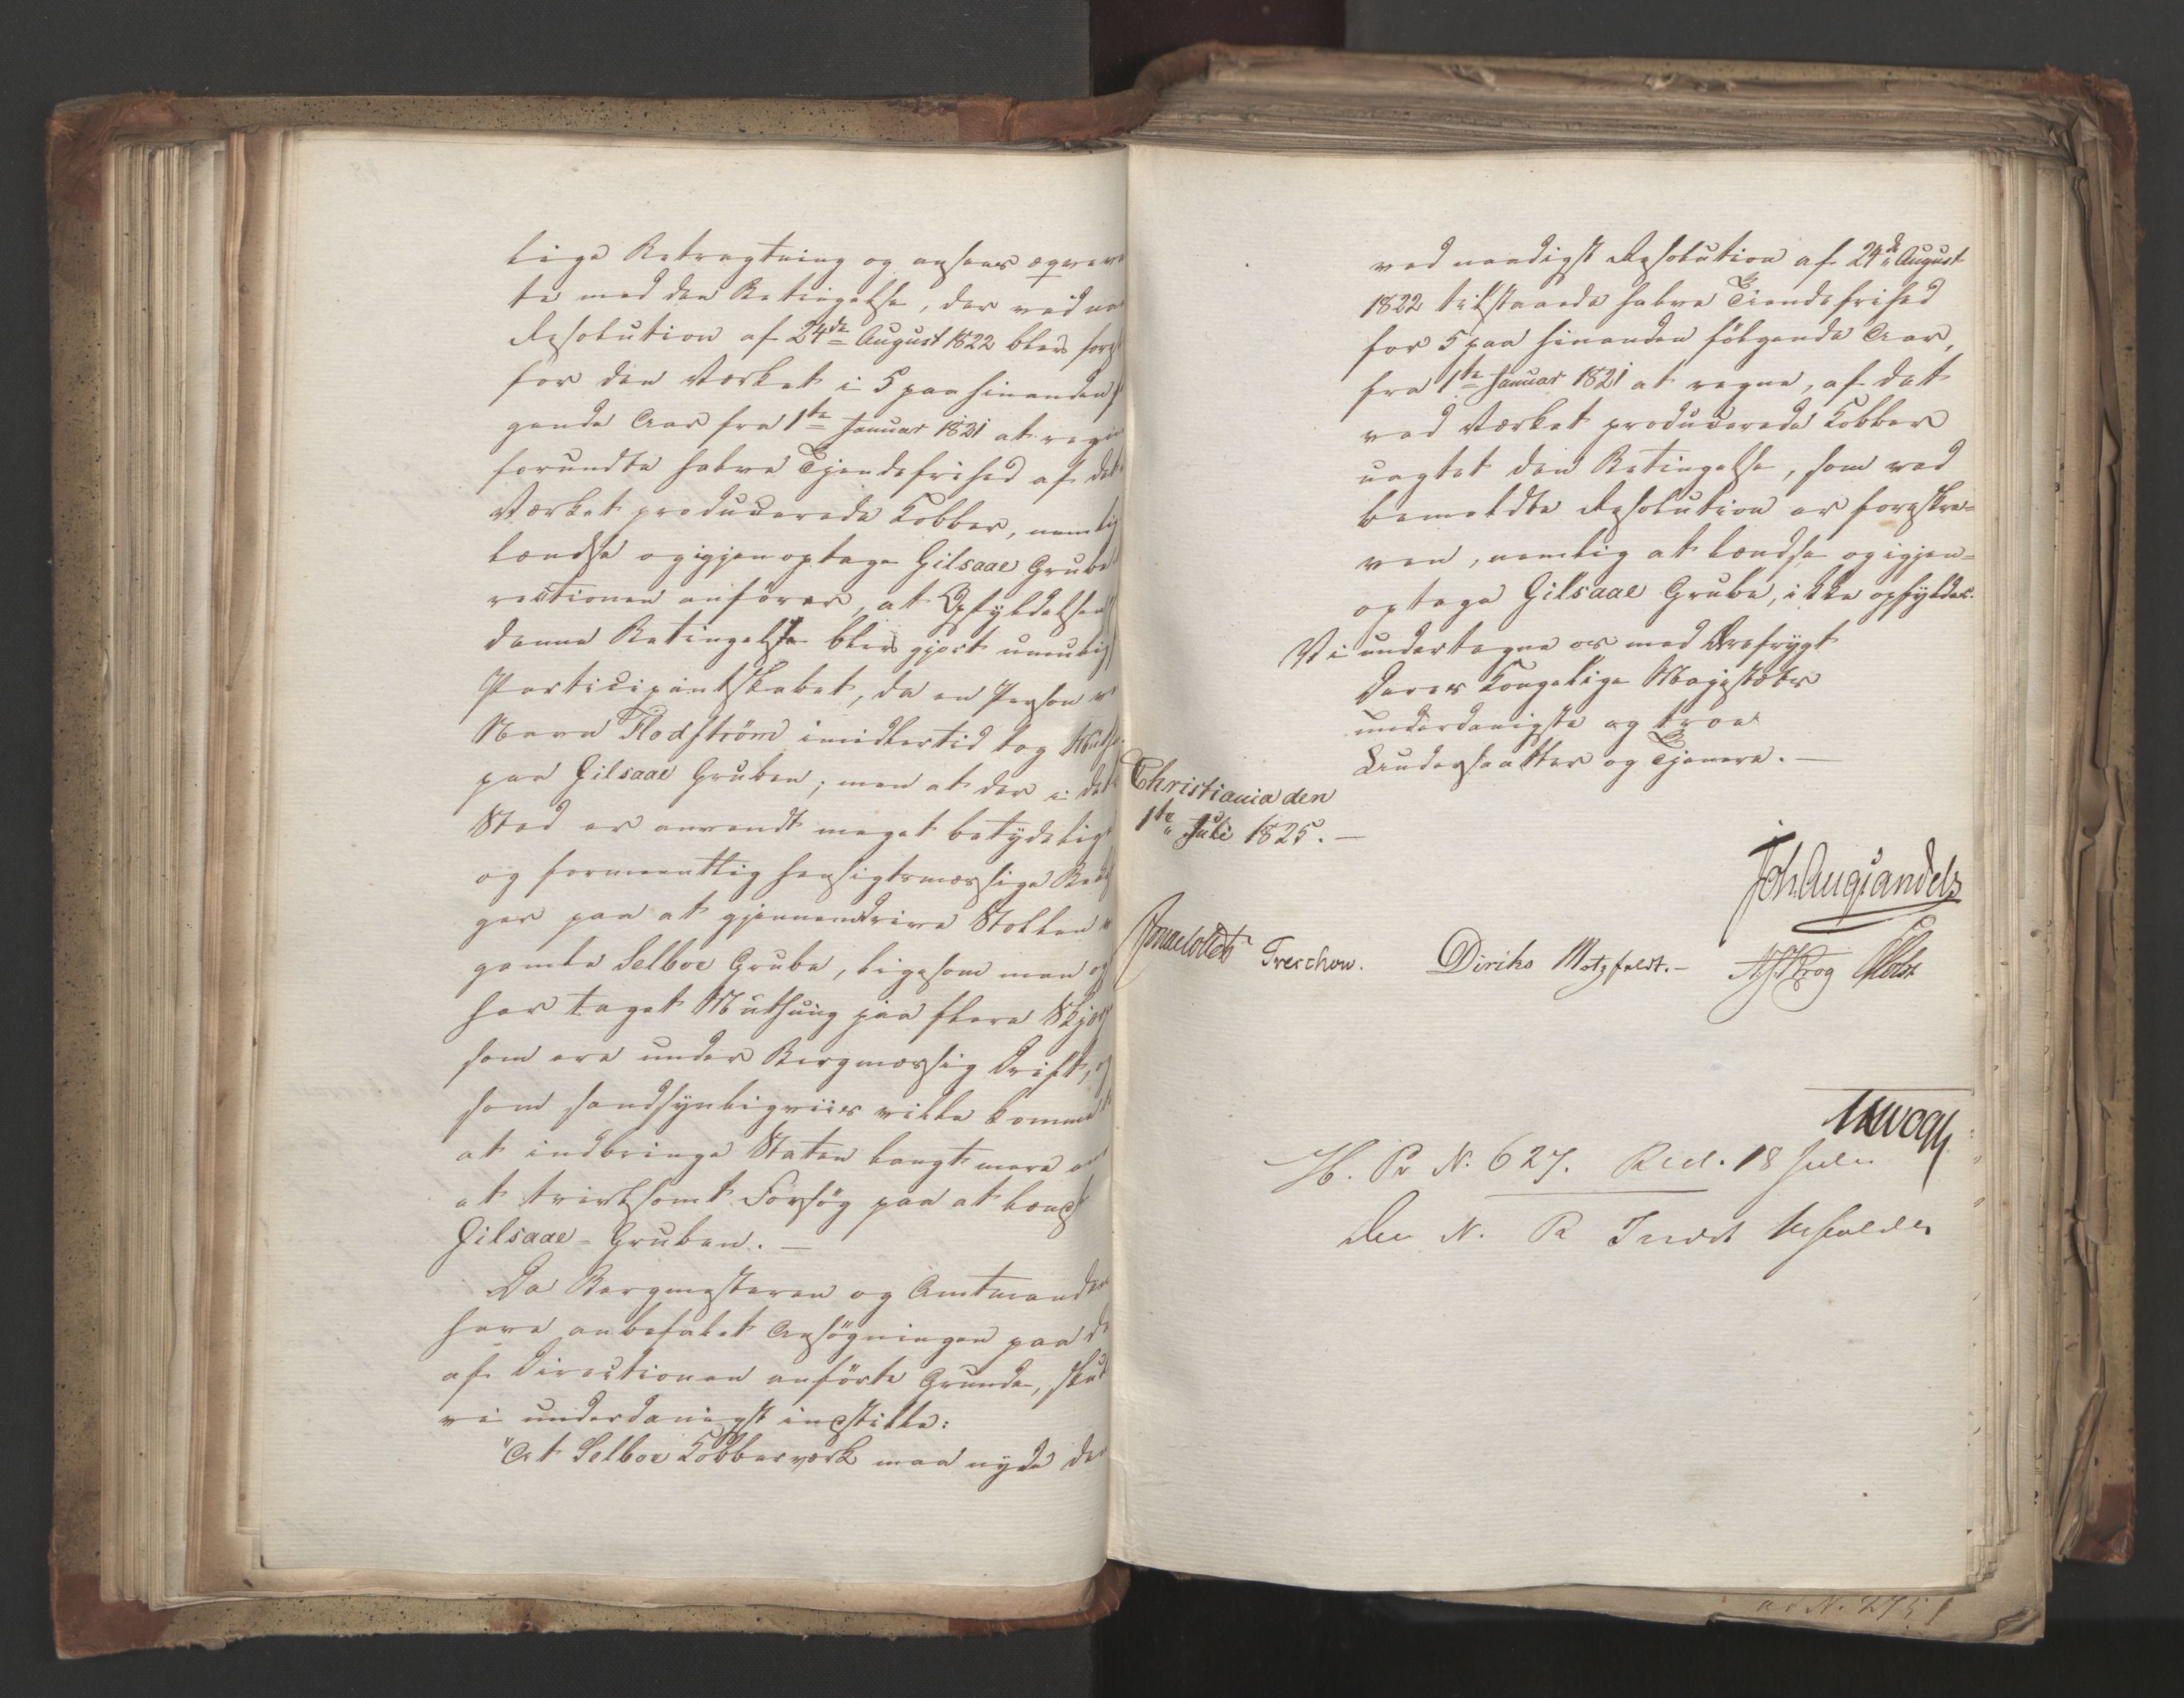 lige Betragtning og ansees æqviva
te med den Betingelse, der ved na
Resolution af 24de August 1822 blev fores
for den Værket i 5 paa hinanden f
gende Aar fra 1te Januar 1821 at regn
forundte halve Tjendefrihed af det
Værket producerede Kobber, nemlig
lændse og igjenoptage Gilsaae Grube
rectionen anfører, at Opfyldelsen
denne Betingelse blev gjort umulig
Participantskabet, da en Person v
Navn Flodstrøm imidlertid tog Muth
paa Gilsaae Gruben; men at der i det
Sted er anvendt meget betydelig
og formeentlig hensigtsmæssige Be
ger paa at gjennemdrive Stollen
gamle Selboe Grube, ligesom man og
har taget Muthung paa flere Skjær
som ere under Bergmæssig Drift, og
som sandsynligviis ville komme
at indbringe Staten langt mere
et tvivlsomt Forsøg paa at lænds
Gilsaae-Gruben. —
Da Bergmesteren og Amtmanden
have anbefalet Ansøgningen paa de
af Directionen anførte Grunde, skul
vi underdanigst indstille:
"At Selboe Kobberværk maa nyde den
ved naadigst Resolution af 24de August
1822 tilstaaede halve Tiendefrihed
for 5 paa hinanden følgende Aar,
fra 1te Januar 1821 at regne, af det
ved Værket producerede Kobber
uagtet den Betingelse, som ved
bemeldte Resolution er foreskre-
ven, nemlig at lændse og igjen-
optage Gilsaae Grube, ikke opfyldes.
Vi undertegne os med Ærefrygt
Deres Kongelige Majestæts
underdanigste og troe
Undersaatter og Tjenere. —
Christiania den
1te Juli 1825. —
Joh. Aug Sandels
Treschow. Diriks Motzfeldt. — Krog Holst
Vogt
H. Pr N. 627. Rel. 18 Juli
Den N. R Indst bifaldes
ad N. 2751